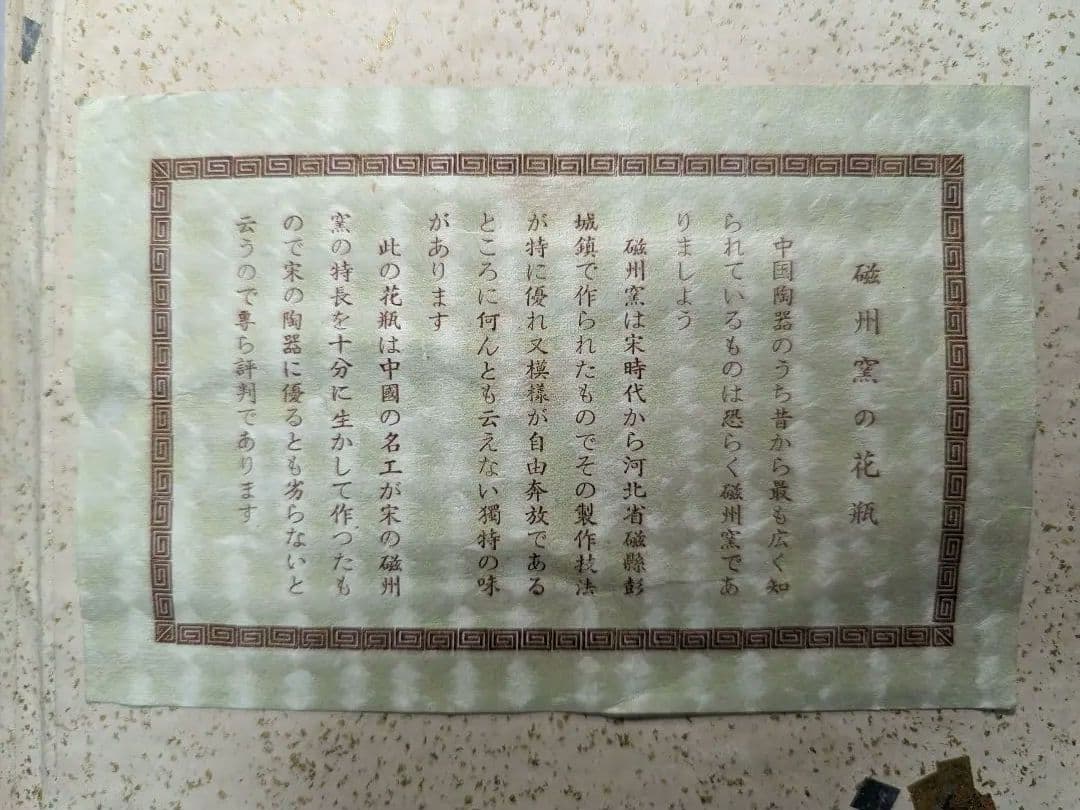 磁州窯の花瓶
中国陶器のうち昔から最も広く知
られているものは恐らく磁州窯であ
りましよう
磁州窯は宋時代から河北省磁縣彭
城鎮で作られたものでその製作技法
が特に優れ又模様が自由奔放である
ところに何んとも云えない獨特の味
があります
此の花瓶は中國の名工が宋の磁州
窯の特長を十分に生かして作つたも
ので宋の陶器に優るとも劣らないと
云うので専ら評判であります